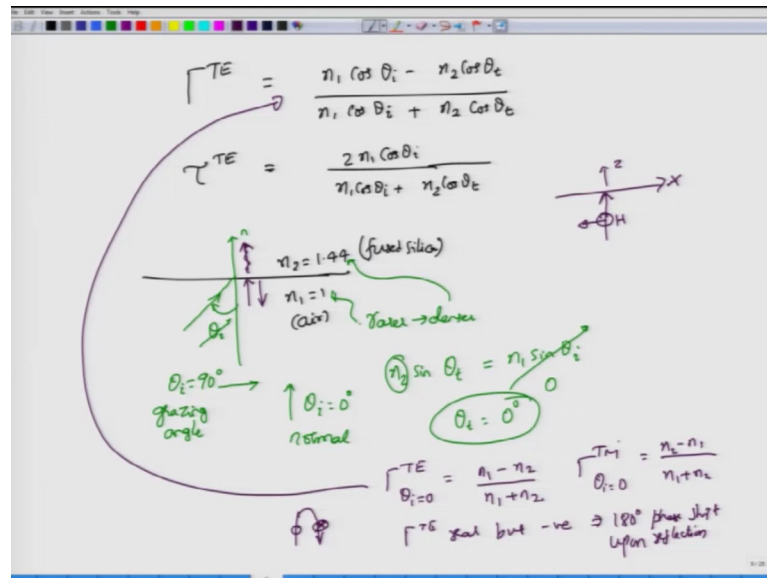 File Edit View Insert Actions Tools Help
Γ^TE = (n₁ Cos θᵢ - n₂ Cos θₜ) / (n₁ Cos θᵢ + n₂ Cos θₜ)
τ^TE = 2 n₁ Cos θᵢ / (n₁ Cos θᵢ + n₂ Cos θₜ)
z
x
H
n
n₂ = 1.44 (fused silica)
n₁ = 1
(air)
rarer → denser
θᵢ
n₂ sin θₜ = n₁ sin θᵢ
0
θᵢ = 90° →
grazing
angle
↑ θᵢ = 0°
normal
θₜ = 0°
Γ^TE θᵢ=0 = (n₁ - n₂) / (n₁ + n₂)
Γ^TM θᵢ=0 = (n₂ - n₁) / (n₁ + n₂)
Γ^TE real but -ve ⇒ 180° phase shift
upon reflection